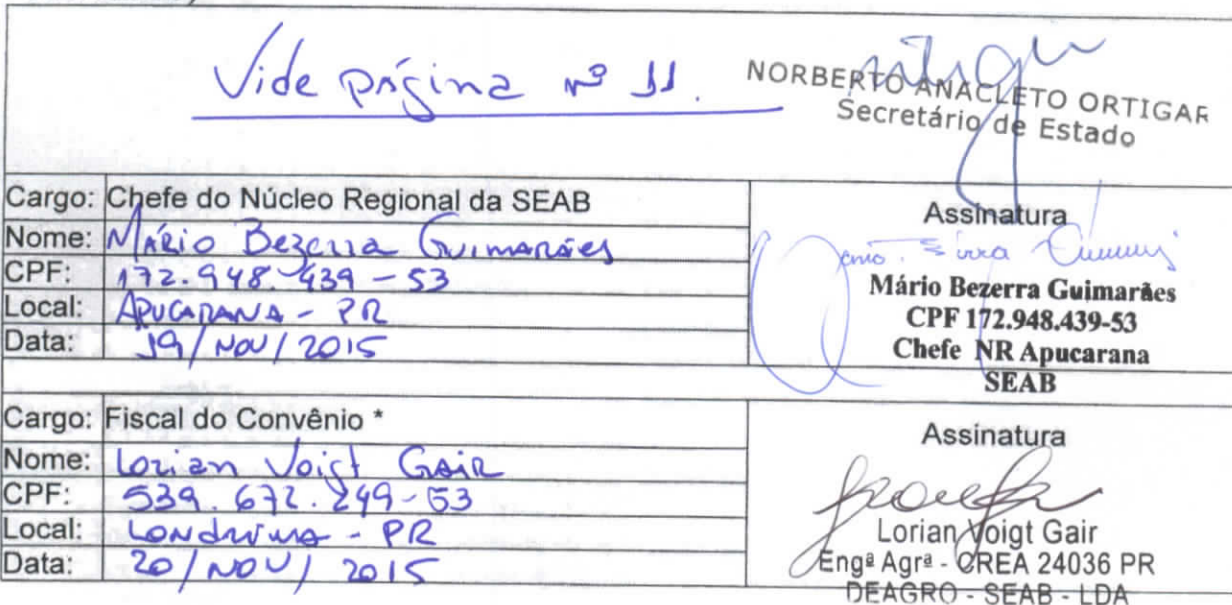 Vide página nº 11.
NORBERTO ANACLETO ORTIGAR
Secretário de Estado
Cargo: Chefe do Núcleo Regional da SEAB
Nome: Mário Bezerra Guimarães
CPF: 172.948.439-53
Local: APUCARANA - PR
Data: 19/NOV/2015
Assinatura
Mário Bezerra Guimarães
CPF 172.948.439-53
Chefe NR Apucarana
SEAB
Cargo: Fiscal do Convênio *
Nome: Lorian Voigt GAIR
CPF: 539.672.249-53
Local: LONdrina - PR
Data: 20/NOV/2015
Assinatura
Lorian Voigt Gair
Engª Agrª - CREA 24036 PR
DEAGRO - SEAB - LDA